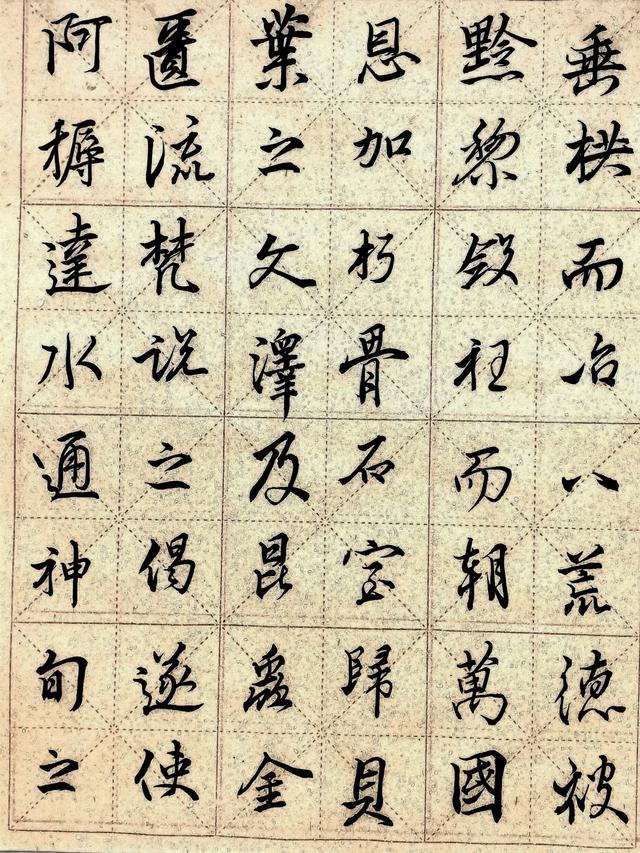 垂拱而治八荒德被
黔黎斂衽而朝萬國
恩加朽骨石室歸貝
葉之文澤及昆蟲金
匱流梵説之偈遂使
阿耨達水通神甸之